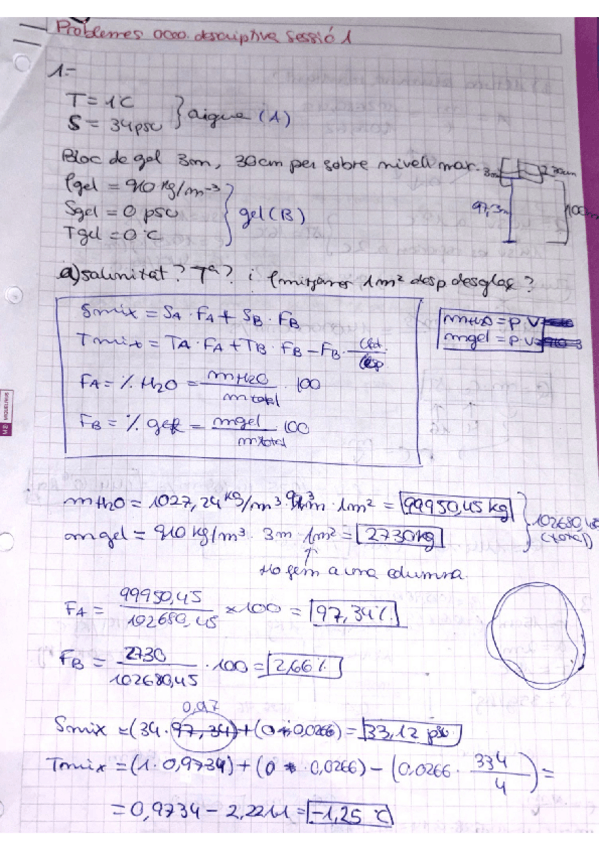 Problemes ocea. descriptiva sessió 1
1.-
T = 1 C
S = 34 psu } aigua (A)
Bloc de gel 3m, 30cm per sobre nivell mar.
ρgel = 910 Kg/m-3
Sgel = 0 psu } gel (B)
Tgel = 0°C
3m 30cm
97,3m 100m
a) salinitat? Tª? i ρ mitjana 1m² desp desglaç?
Smix = SA · FA + SB · FB
Tmix = TA · FA + TB · FB - FB ·
FA = % H2O = mH2O / mtotal · 100
FB = % gel = mgel / mtotal · 100
mH2O = ρ · V
mgel = ρ · V
mH2O = 1027,24 kg/m³ · 97,3m · 1m² = 99950,45 kg
mgel = 910 kg/m³ · 3m · 1m² = 2730 kg
} 102680,45 (total)
↑
Ho fem a una columna
FA = 99950,45 / 102680,45 × 100 = 97,34%
FB = 2730 / 102680,45 · 100 = 2,66%
0,97
Smix = (34 · 97,34) + (0 · 0,0266) = 33,12 psu
Tmix = (1 · 0,9734) + (0 · 0,0266) - (0,0266 · 334 / 4) =
= 0,9734 - 2,2211 = -1,25 °C